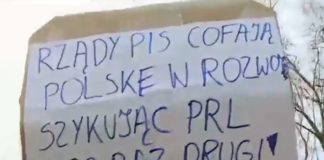 RZĄDY PIS COFAJĄ
POLSKĘ W ROZWOJ
SZYKUJĄC PRL
RAZ DRUGI!